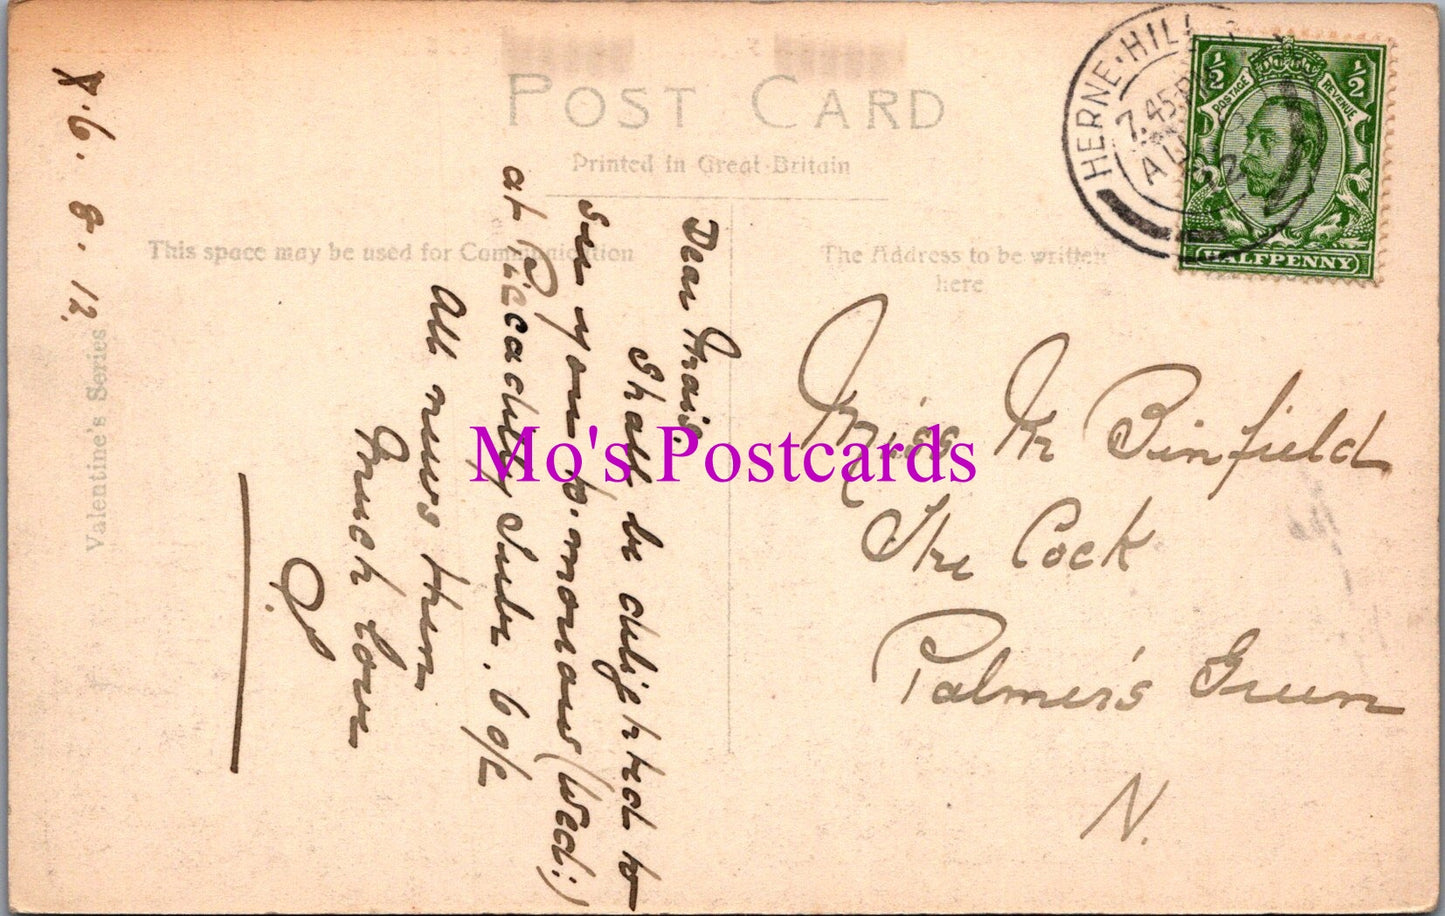 POST CARD
Printed in Great Britain
This space may be used for Communication
The Address to be written
here
Valentine's Series
HERNE·HILL
7.45 PM
AU 6
12
½ ½
POSTAGE REVENUE
HALFPENNY
6.8.12.
Dear
Shall be delighted to
see you to-morrow (Wed:)
at Piccadilly Tube. 6 o/c
All news then
Much love
Miss M Binfield
The Cock
Palmer's Green
N.
Mo's Postcards